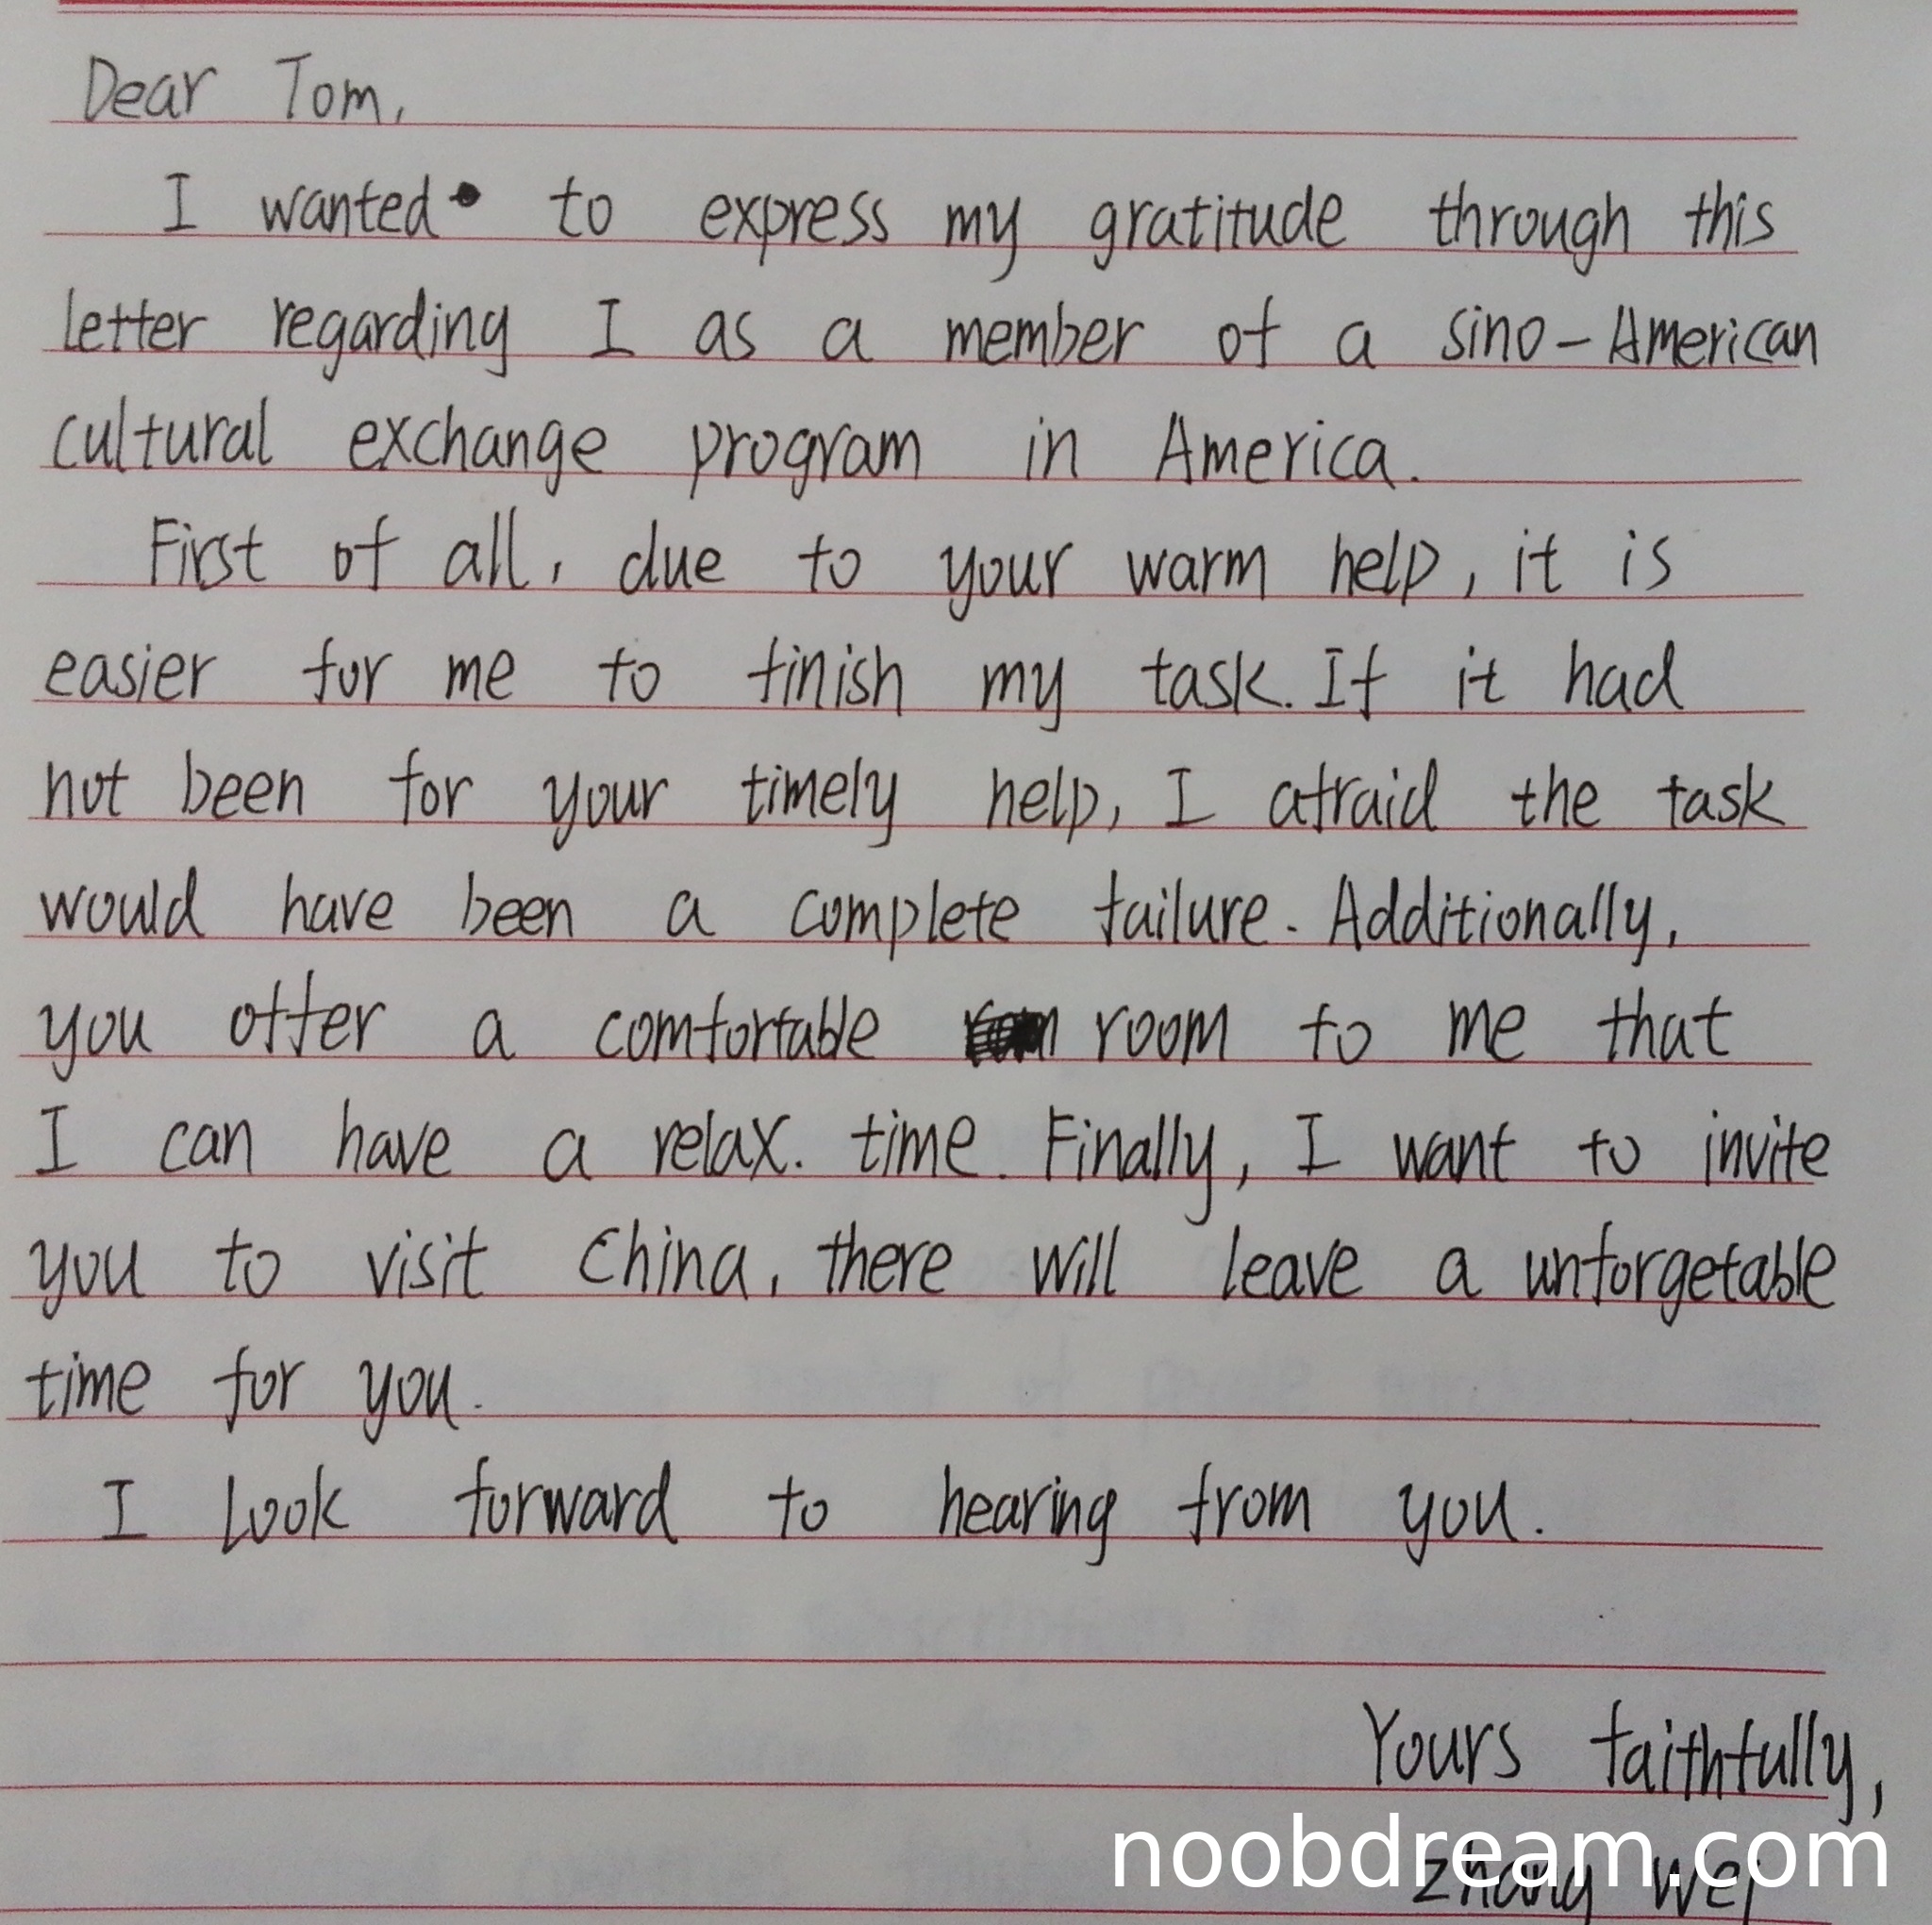 Dear Tom,
I wanted to express my gratitude through this
letter regarding I as a member of a sino-American
cultural exchange program in America.
First of all, due to your warm help, it is
easier for me to finish my task. If it had
not been for your timely help, I afraid the task
would have been a complete failure. Additionally,
you offer a comfortable room to me that
I can have a relax. time. Finally, I want to invite
you to visit China, there will leave a unforgetable
time for you.
I look forward to hearing from you.
Yours faithfully,
noobdream.com
zhang wei